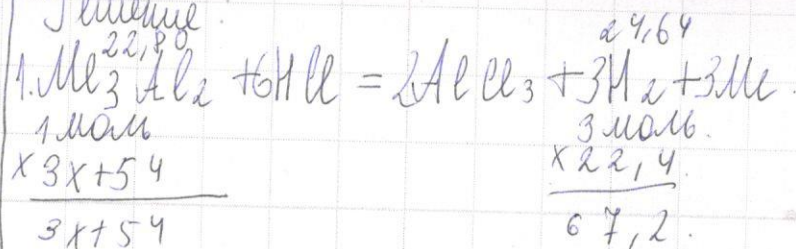 Решение.
22,80 24,64
1. Me₃Al₂ + 6HCl = 2AlCl₃ + 3H₂ + 3Me.
1 моль 3 моль.
x 3x+54 x 22,4.
3x+54 67,2.